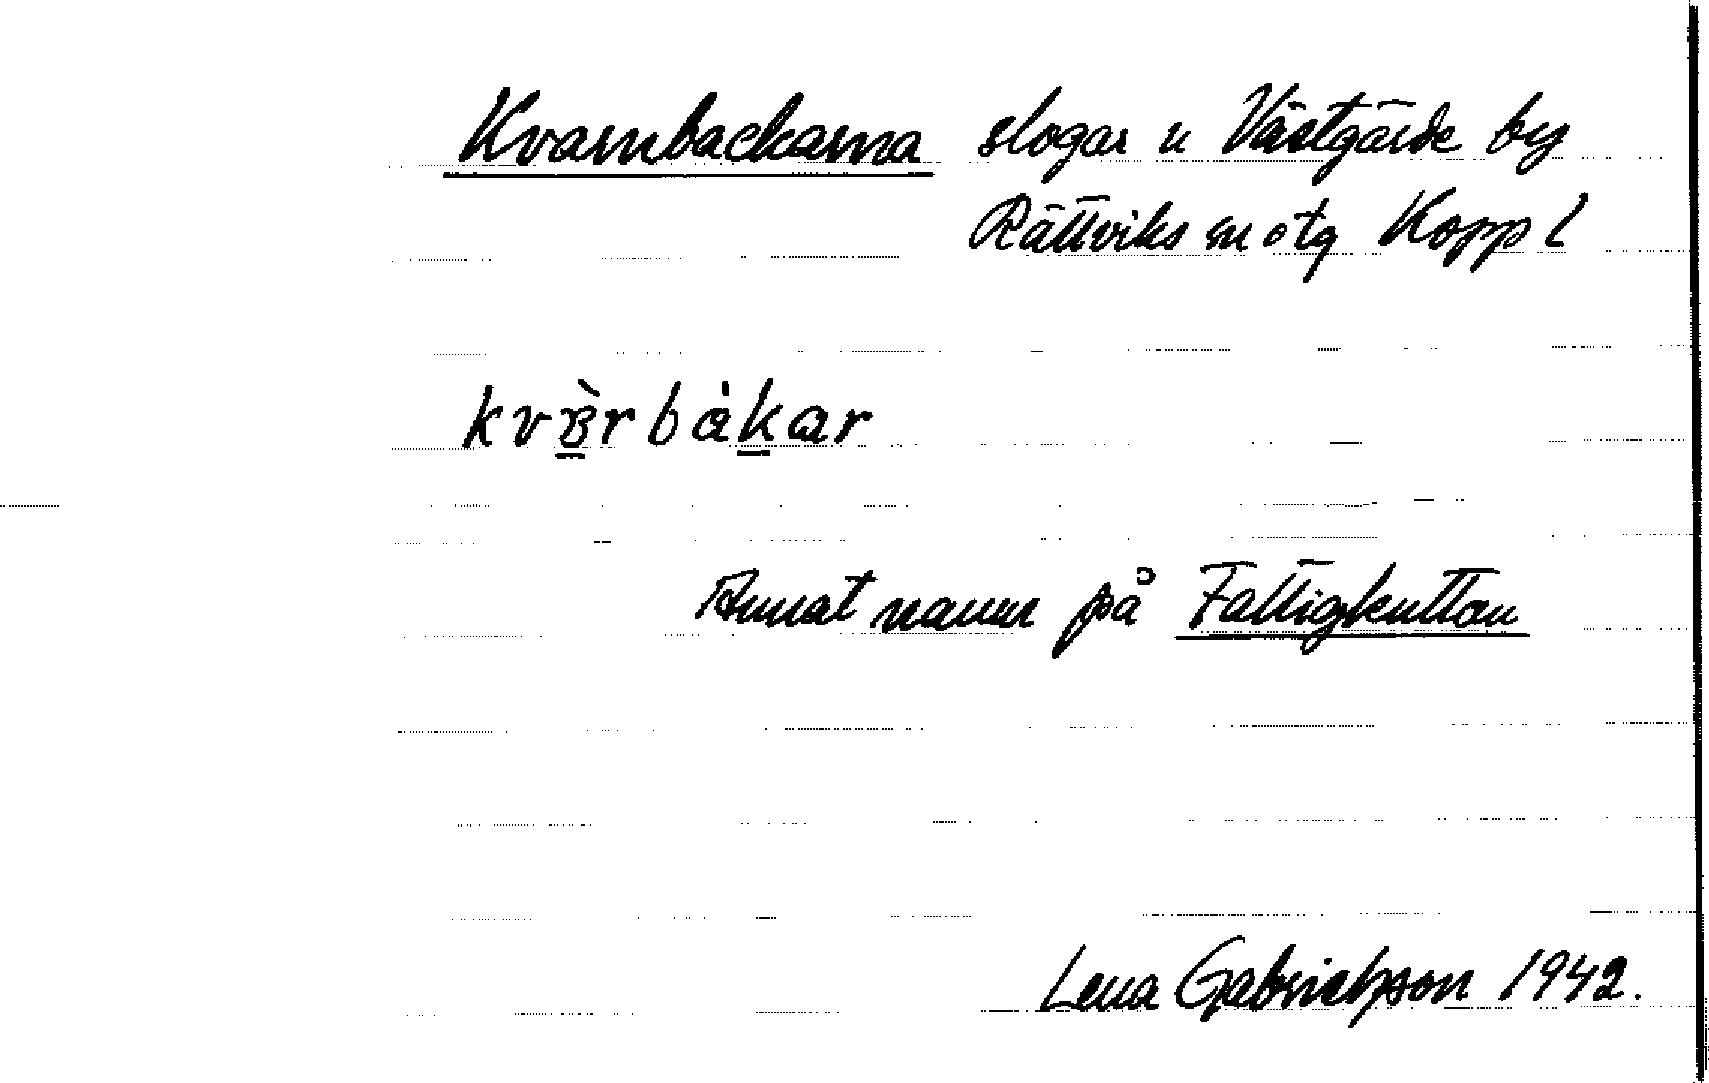 Kvarnbackarna slogar u Västgärde by
Rättviks sn o tg Kopp l
kvɐ̀rbàkar
Annat namn på Fattigkuttan
Lena Gabrielsson 1942.